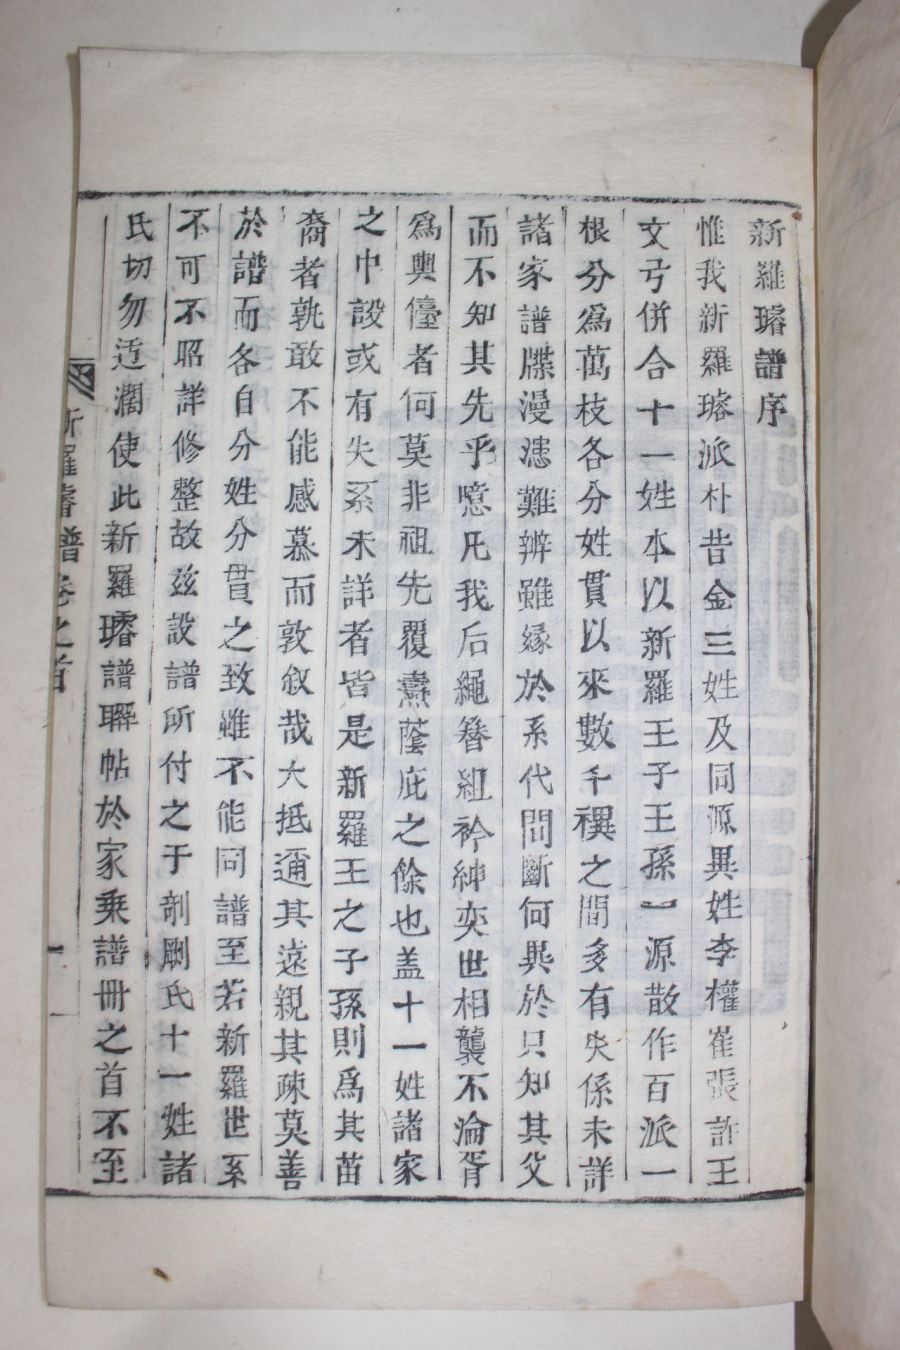 新羅璿譜序
惟我新羅璿派朴昔金三姓及同源異姓李權崔張許王
文弓併合十一姓本以新羅王子王孫一源散作百派一
根分爲萬枝各分姓貫以來數千禩之間多有失係未詳
諸家譜牒漫漶難辨雖緣於系代間斷何異於只知其父
而不知其先乎噫凡我后繩簪組衿紳奕世相襲不淪胥
爲輿儓者何莫非祖先覆燾蔭庇之餘也盖十一姓諸家
之中設或有失系未詳者皆是新羅王之子孫則爲其苗
裔者孰敢不能感慕而敦叙哉大抵邇其遠親其疎莫善
於譜而各自分姓分貫之致雖不能同譜至若新羅世系
不可不昭詳修整故玆設譜所付之于剞劂氏十一姓諸
氏切勿迃濶使此新羅璿譜聯帖於家乗譜冊之首不至
新羅璿譜卷之首